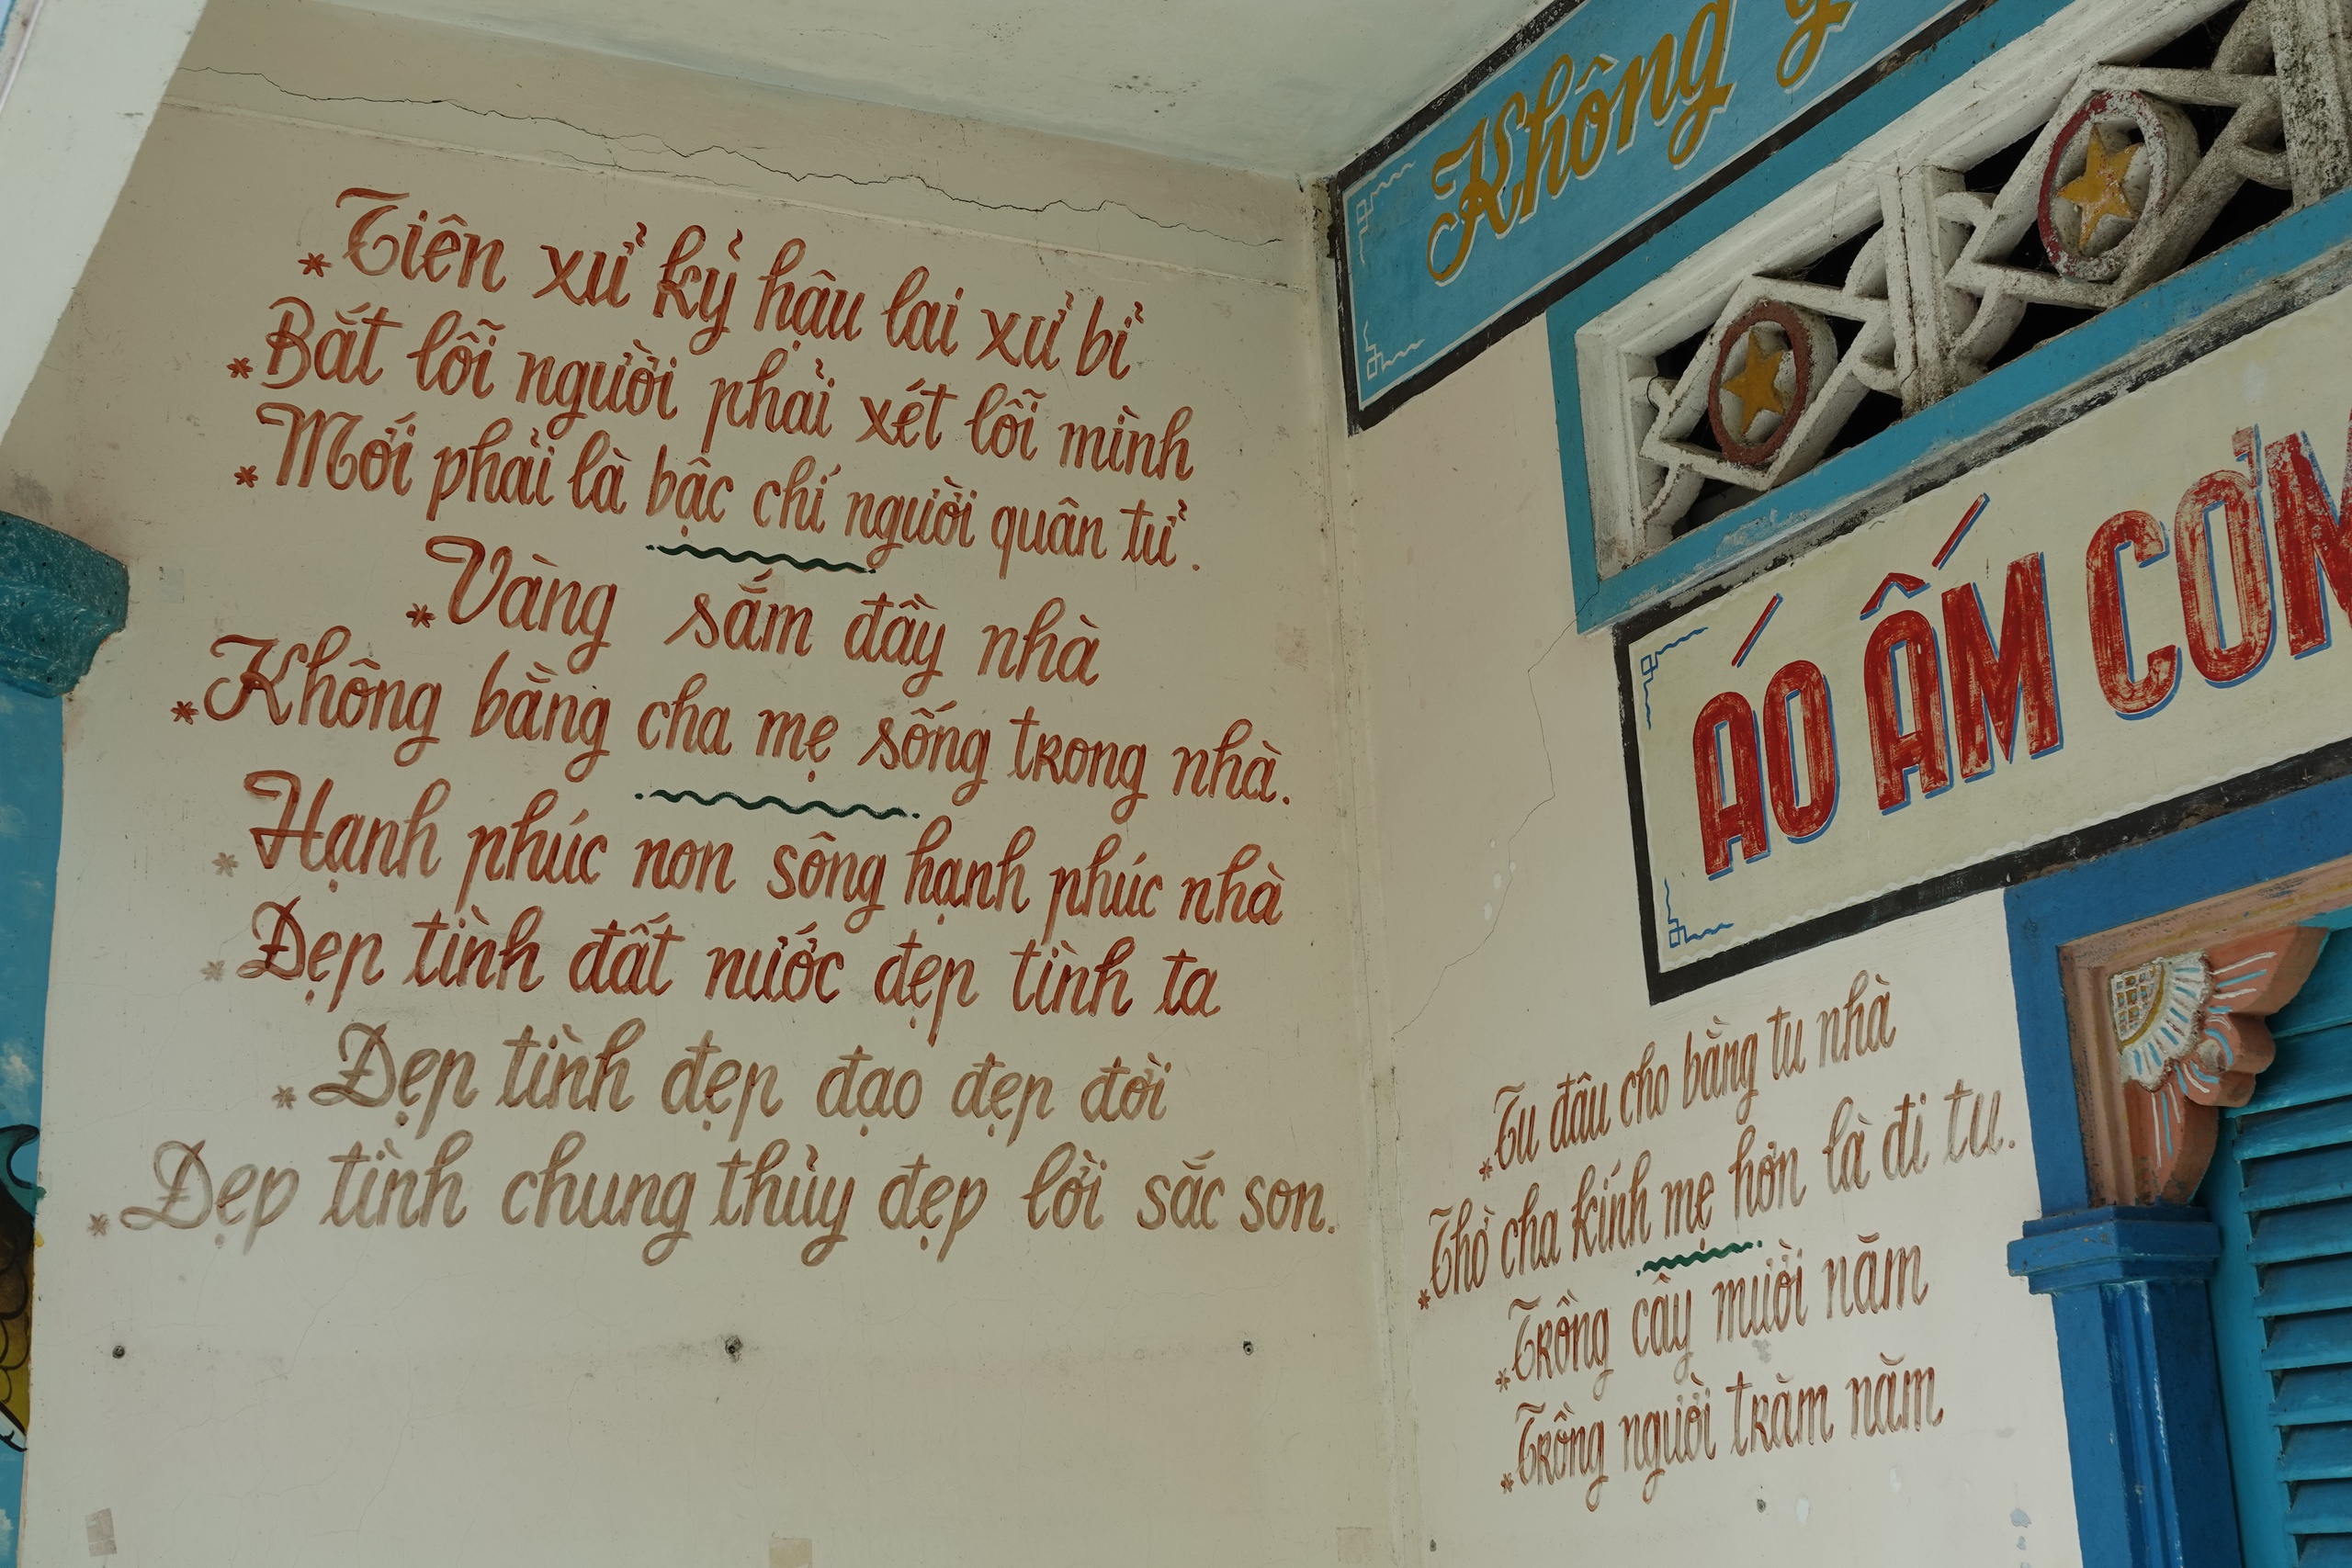 * Tiên xử kỷ hậu lai xử bỉ
* Bắt lỗi người phải xét lỗi mình
* Mới phải là bậc chí người quân tử.
* Vàng sắm đầy nhà
* Không bằng cha mẹ sống trong nhà.
* Hạnh phúc non sông hạnh phúc nhà
* Đẹp tình đất nước đẹp tình ta
* Đẹp tình đẹp đạo đẹp đời
* Đẹp tình chung thủy đẹp lời sắc son.
Không
ÁO ẤM CƠM
* Tu đâu cho bằng tu nhà
* Thờ cha kính mẹ hơn là đi tu.
* Trồng cây mười năm
* Trồng người trăm năm